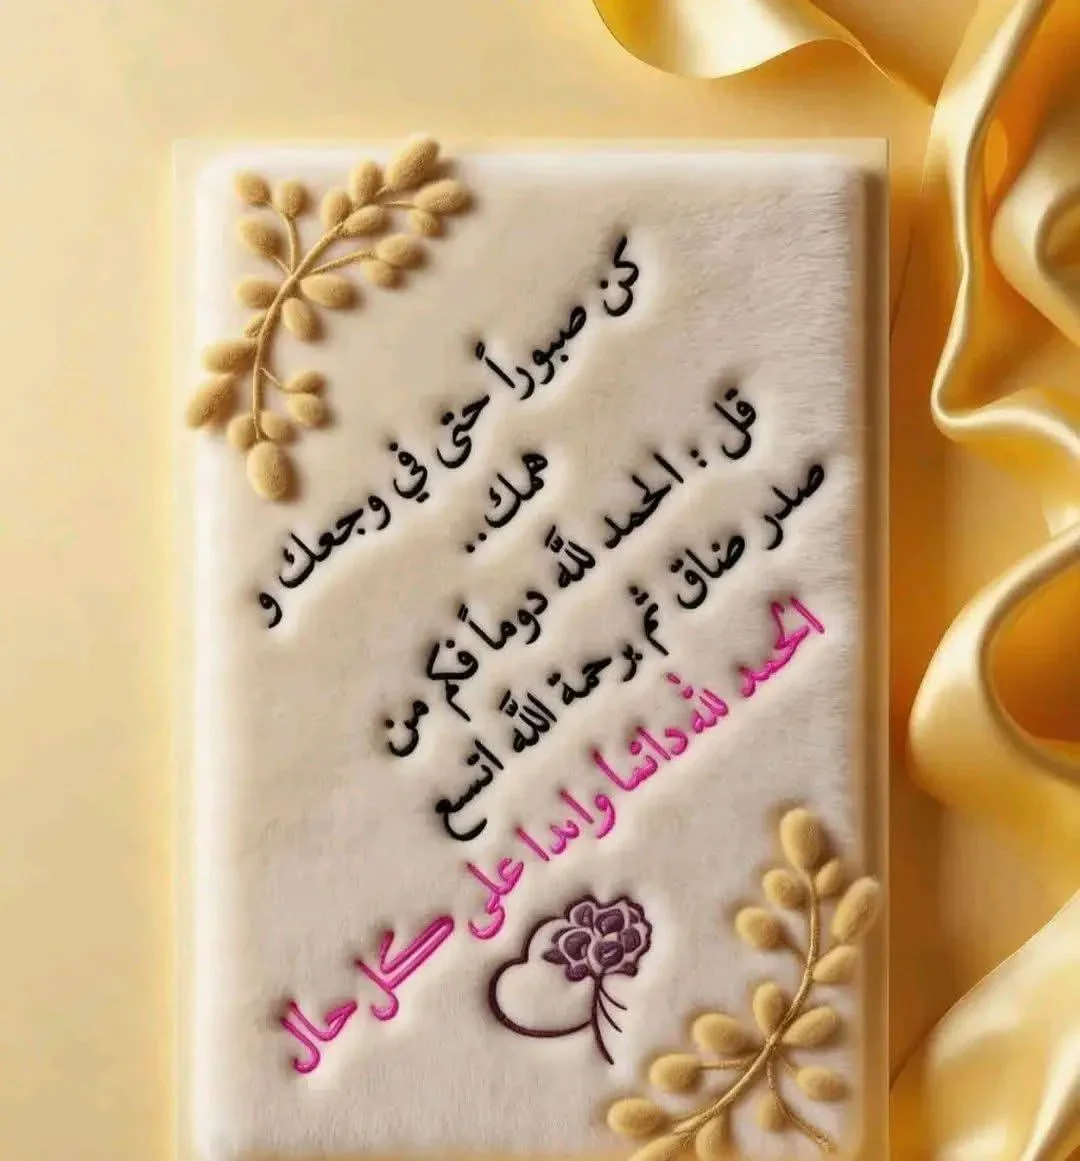 كن صبوراً حتى في وجعك و
همك..
قل : الحمد لله دوماً فكم من
صدر ضاق ثم برحمة الله اتسع
الحمد لله دائما وابدا على كل حال